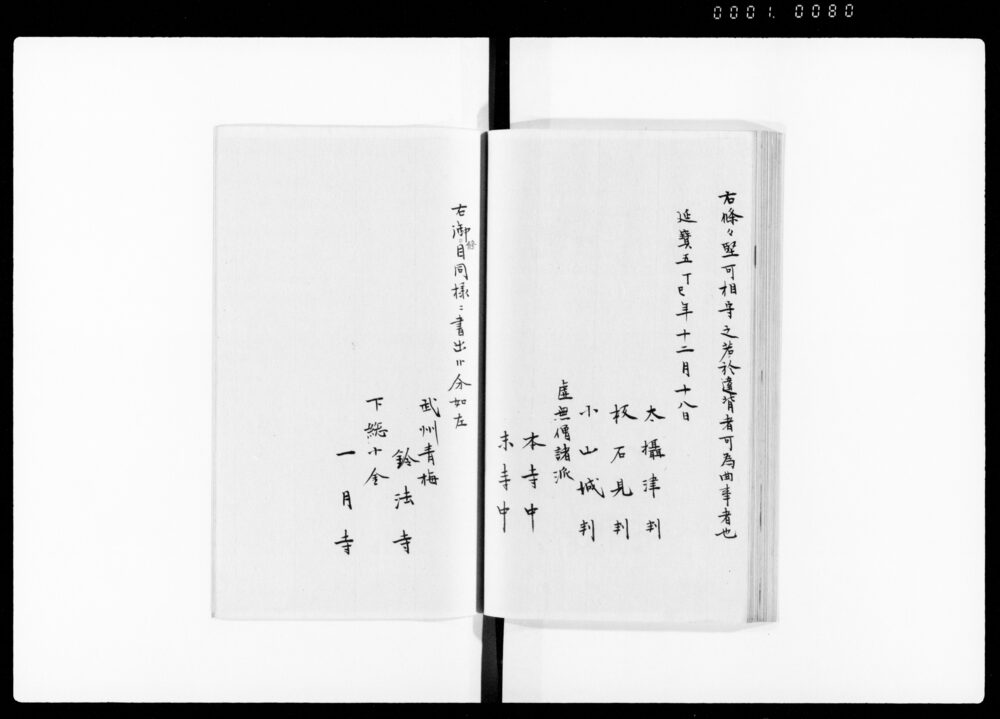 0001. 0080
右條々堅可相守之若於違背者可為曲事者也
延寳五丁巳年十二月十八日
太攝津判
板石見判
小山城判
虚無僧諸派
本寺中
末寺中
右御目同様ニ書出
分如左
武州青梅
鈴法寺
下總小金
一月寺